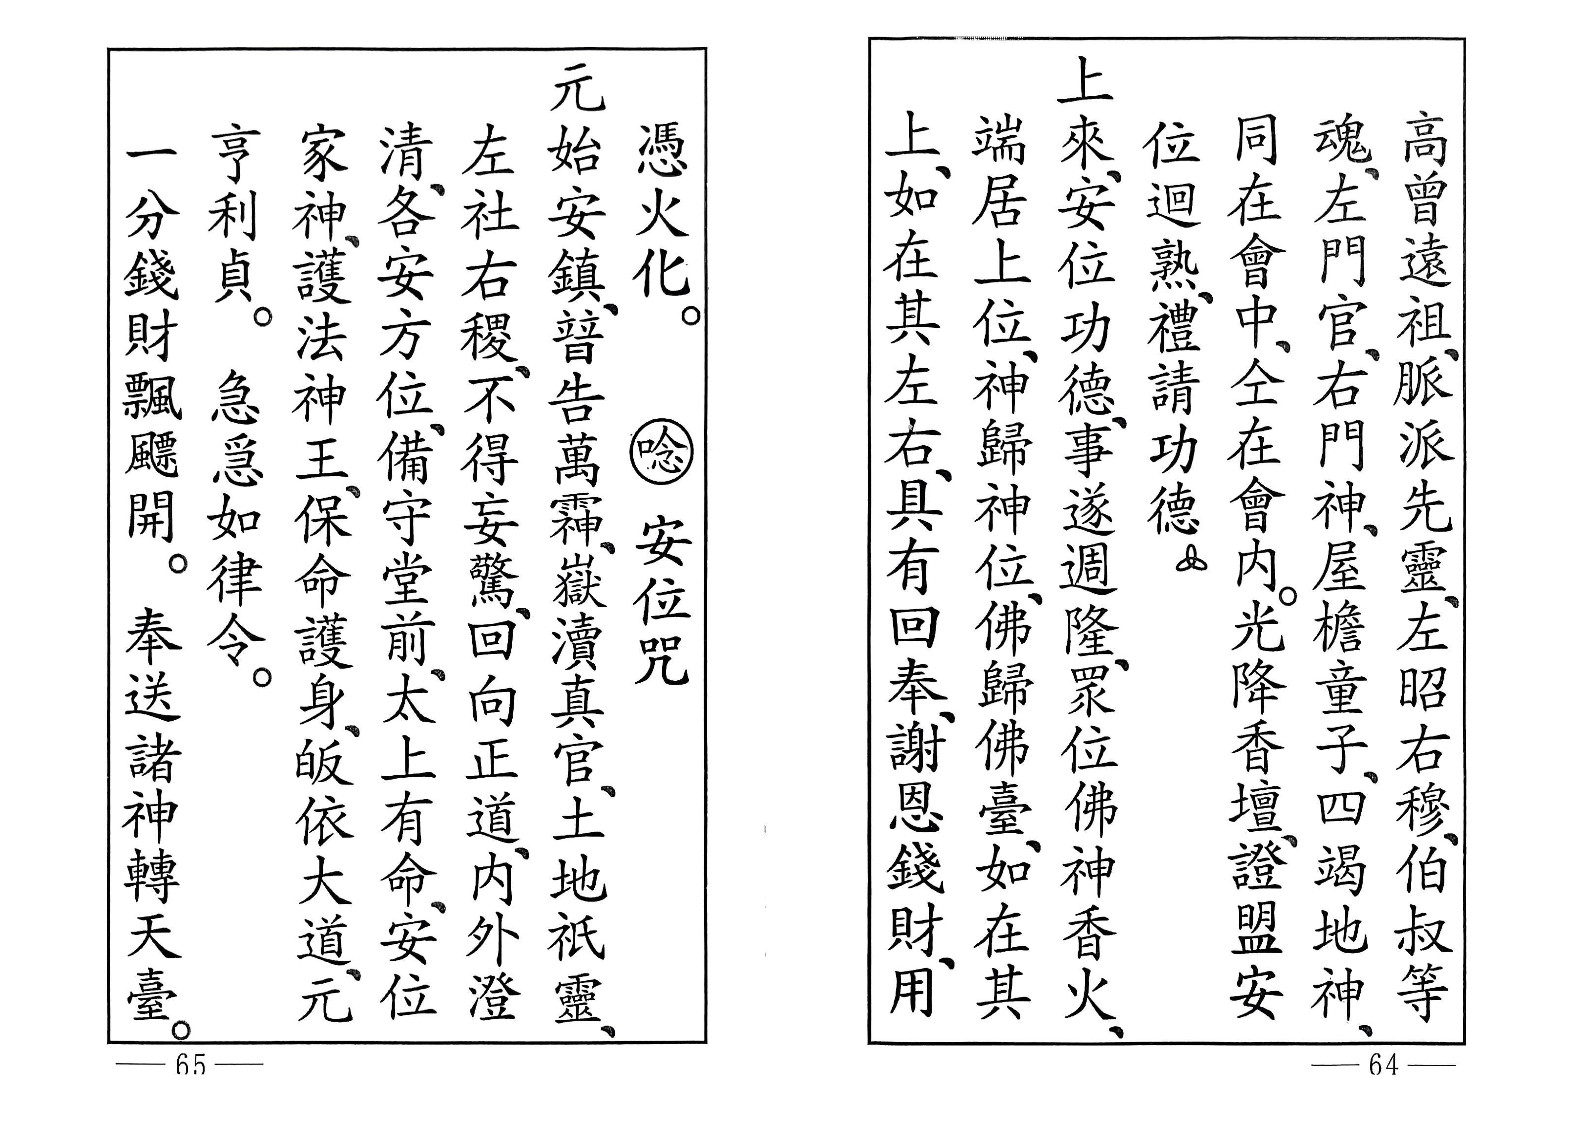 高曾遠祖、脈派先靈、左昭右穆、伯叔等
魂、左門官、右門神、屋檐童子、四竭地神、
同在會中、仝在會內。光降香壇、證盟安
位迴熟、禮請功德
上來、安位功德、事遂週隆、眾位佛神香火、
端居上位、神歸神位、佛歸佛臺、如在其
上、如在其左右、具有回奉、謝恩錢財、用
64
憑火化。 唸 安位咒
元始安鎮、普告萬靈、嶽瀆真官、土地祇靈、
左社右稷、不得妄驚、回向正道、內外澄
清、各安方位、備守堂前、太上有命、安位
家神、護法神王、保命護身、皈依大道、元
亨利貞。 急急如律令。
一分錢財飄飄開。 奉送諸神轉天臺。
65